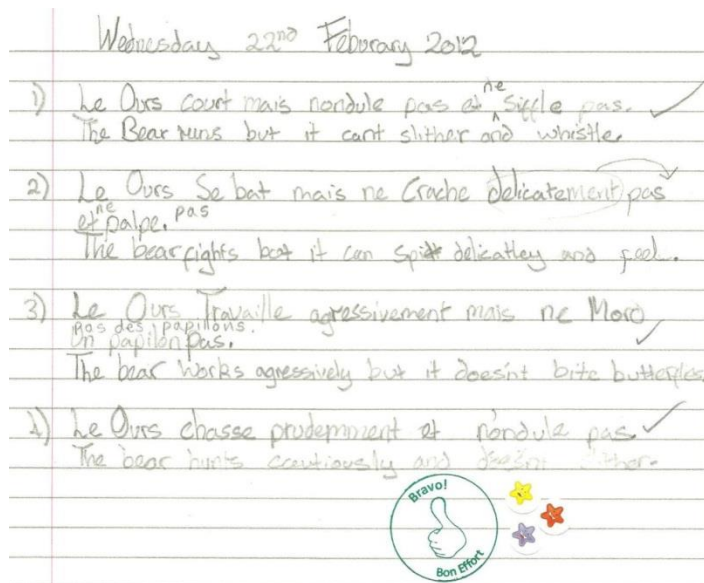 Wednesday 22nd Feburary 2012
1) Le Ours court mais nondule pas et ne siffle pas.
The Bear runs but it cant slither and whistle.
2) Le Ours Se bat mais ne Crache delicatement pas
et ne palpe. pas
The bear fights but it can spit delicatley and feel.
3) Le Ours Travaille agressivement mais ne Mord
pas des papillons.
Un papilon pas.
The bear works agressively but it doesint bite butterflies.
4) Le Ours chasse prudemment et nondule pas
The bear hunts cautiously and doesnt slither.
Bravo!
Bon Effort